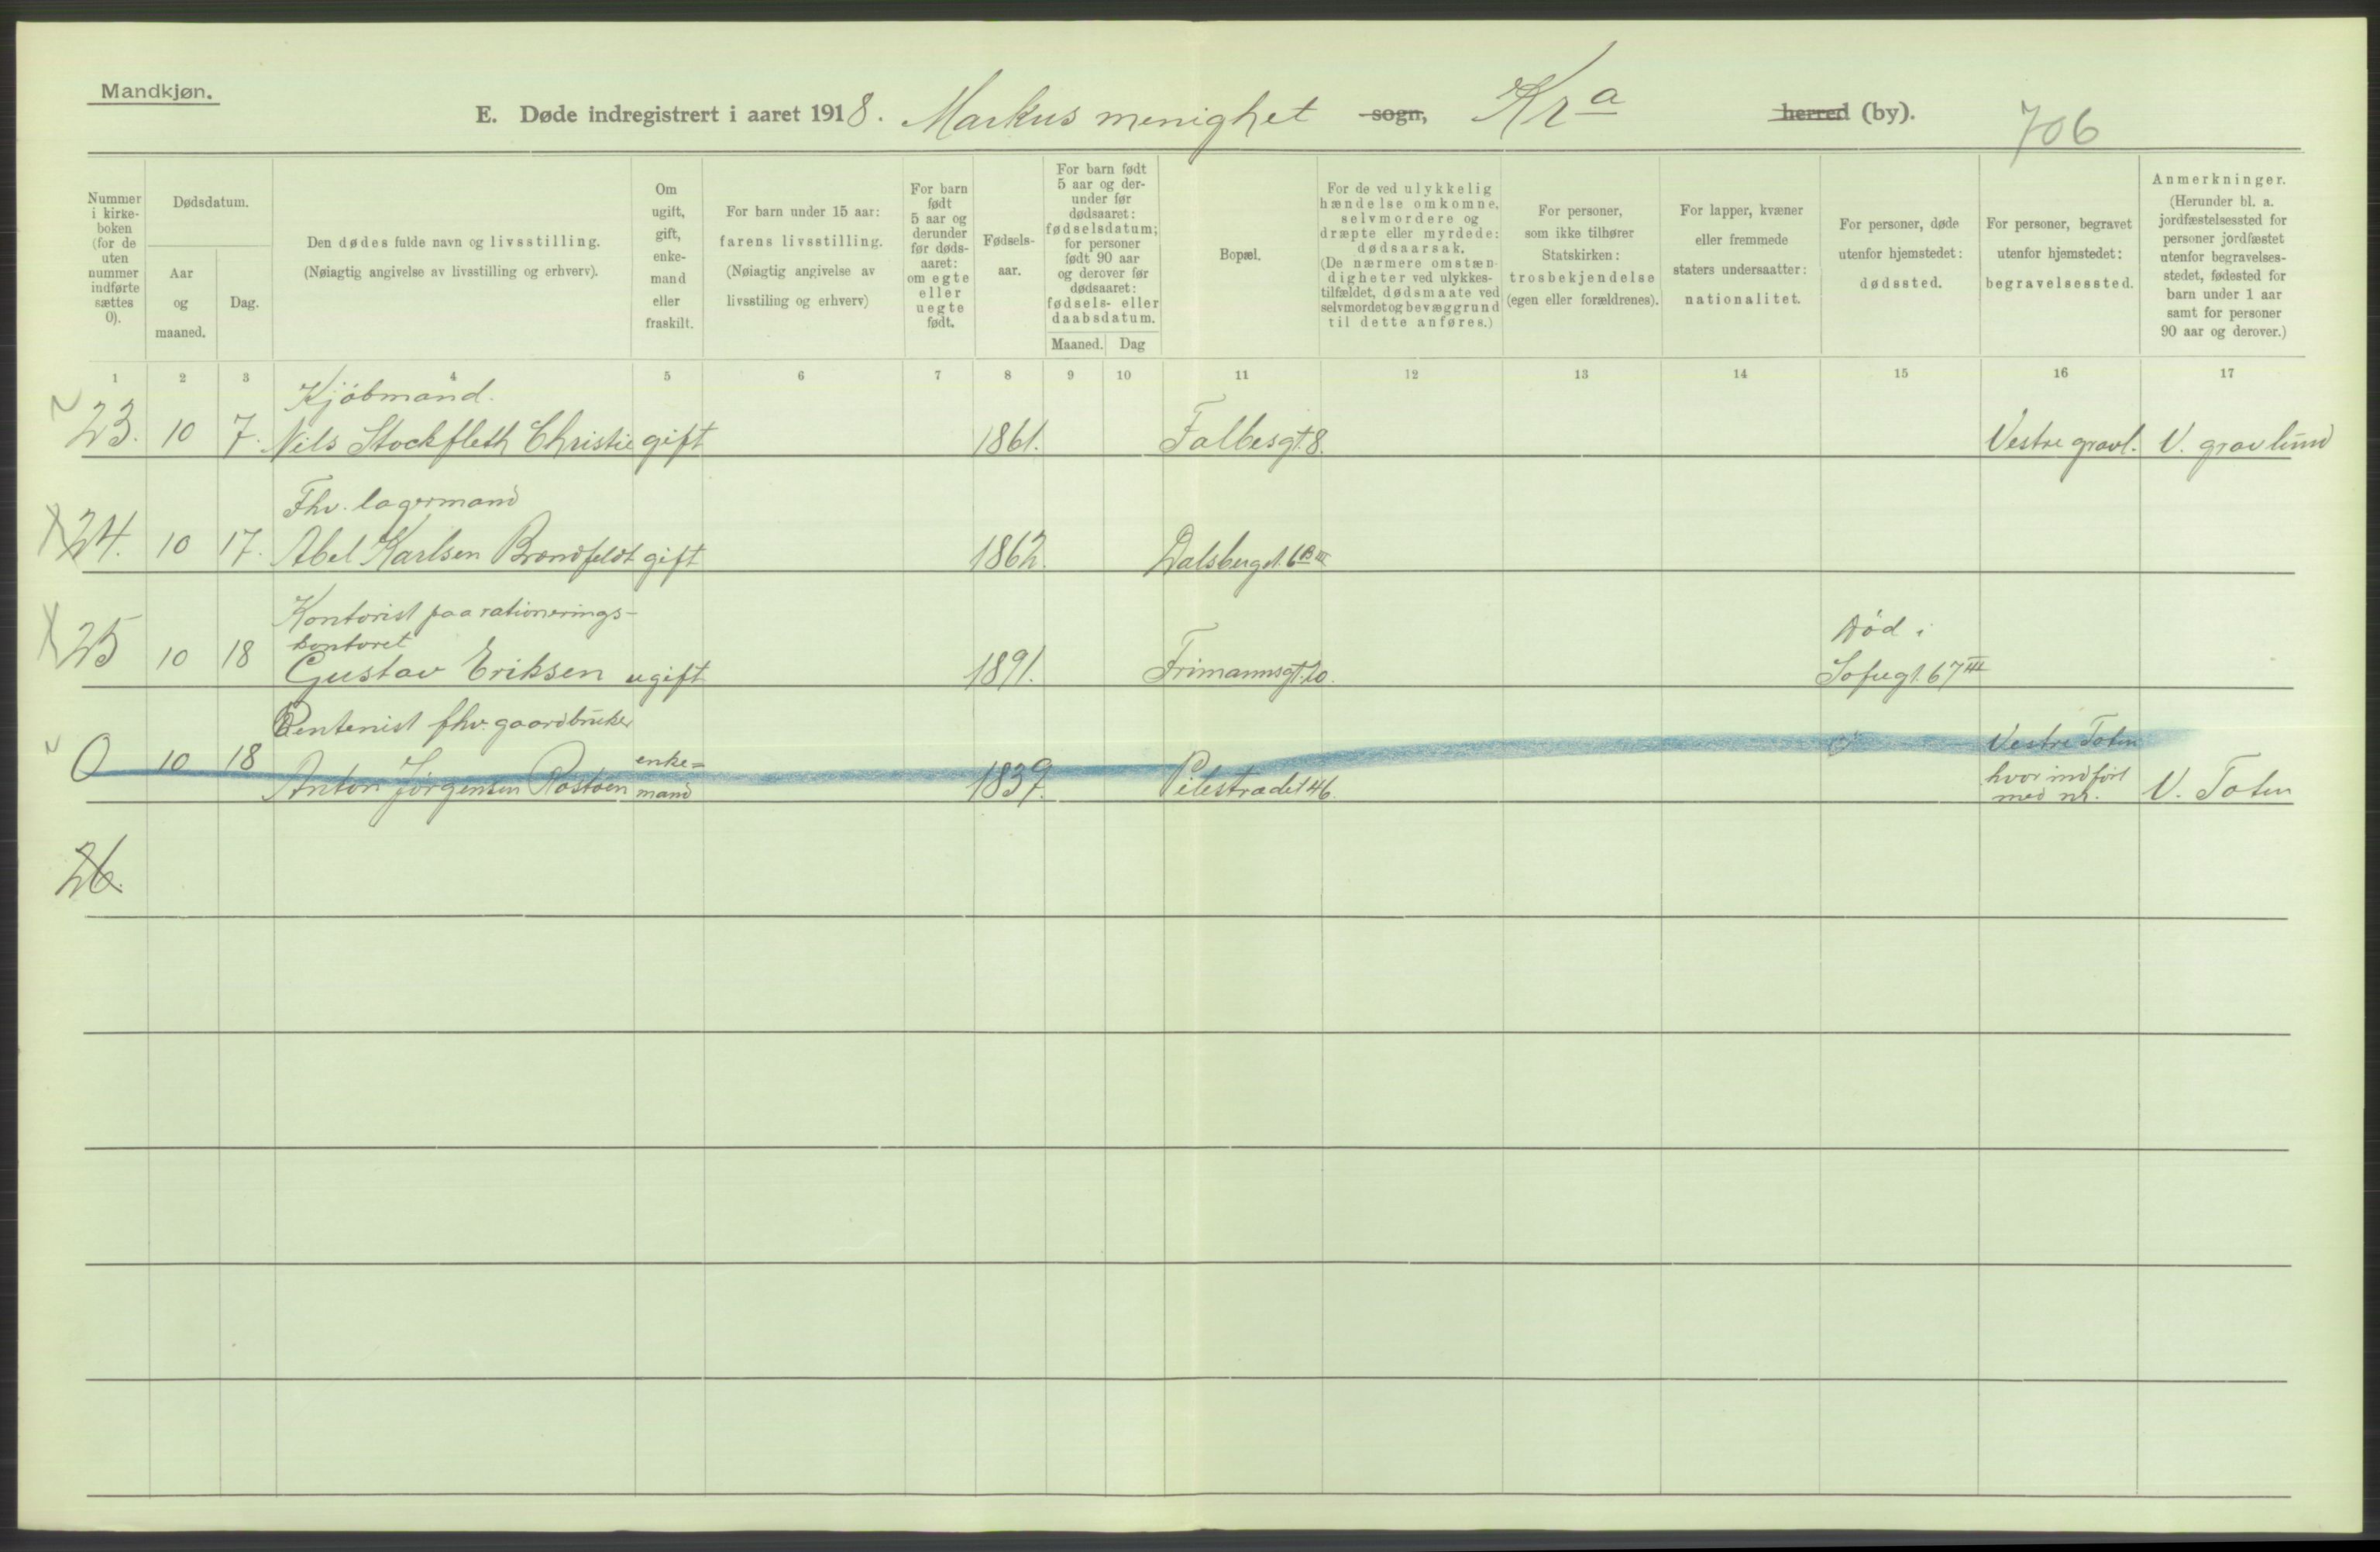 Mandkjøn.
E. Døde indregistrert i aaret 1918. Markus menighet sogn, Kra herred (by). 706
Nummer
i kirke-
boken
(for de
uten
nummer
indførte
sættes
0).
Dødsdatum.
Aar
og
maaned.
Dag.
Den dødes fulde navn og livsstilling.
(Nøiagtig angivelse av livsstilling og erhverv).
Om
ugift,
gift,
enke-
mand
eller
fraskilt.
For barn under 15 aar:
farens livsstilling.
(Nøiagtig angivelse av
livsstiling og erhverv)
For barn
født
5 aar og
derunder
før døds-
aaret:
om egte
eller
uegte
født.
Fødsels-
aar.
For barn født
5 aar og der-
under før
dødsaaret:
fødselsdatum;
for personer
født 90 aar
og derover før
dødsaaret:
fødsels- eller
daabsdatum.
Maaned. Dag
Bopæl.
For de ved ulykkelig
hændelse omkomne,
selvmordere og
dræpte eller myrdede:
dødsaarsak.
(De nærmere omstæn-
digheter ved ulykkes-
tilfældet, dødsmaate ved
selvmordet og bevæggrund
til dette anføres.)
For personer,
som ikke tilhører
Statskirken:
trosbekjendelse
(egen eller forældrenes).
For lapper, kvæner
eller fremmede
staters undersaatter:
nationalitet.
For personer, døde
utenfor hjemstedet:
dødssted.
For personer, begravet
utenfor hjemstedet:
begravelsessted.
Anmerkninger.
(Herunder bl. a.
jordfæstelsessted for
personer jordfæstet
utenfor begravelses-
stedet, fødested for
barn under 1 aar
samt for personer
90 aar og derover.)
1 2 3 4 5 6 7 8 9 10 11 12 13 14 15 16 17
Kjøbmand.
23. 10 7. Nils Stockfleth Christie gift 1861. Falbesgt. 8. Vestre gravl. V. gravlund
Fhv. lagermand
24. 10 17. Abel Karlsen Brandfeldt gift 1862. Dalsbergst. 6 B III
Kontorist paa rationerings-
kontoret Død i
25 10 18 Gustav Eriksen ugift 1891. Frimannsgt. 20. Sofiegt. 67 III
Rentenist fhv. gaardbruker
0 10 18 enke= Vestre Toten
Anton Jørgensen mand 1839. Pilestrædet 46. hvor indført
med nr. V. Toten
26.